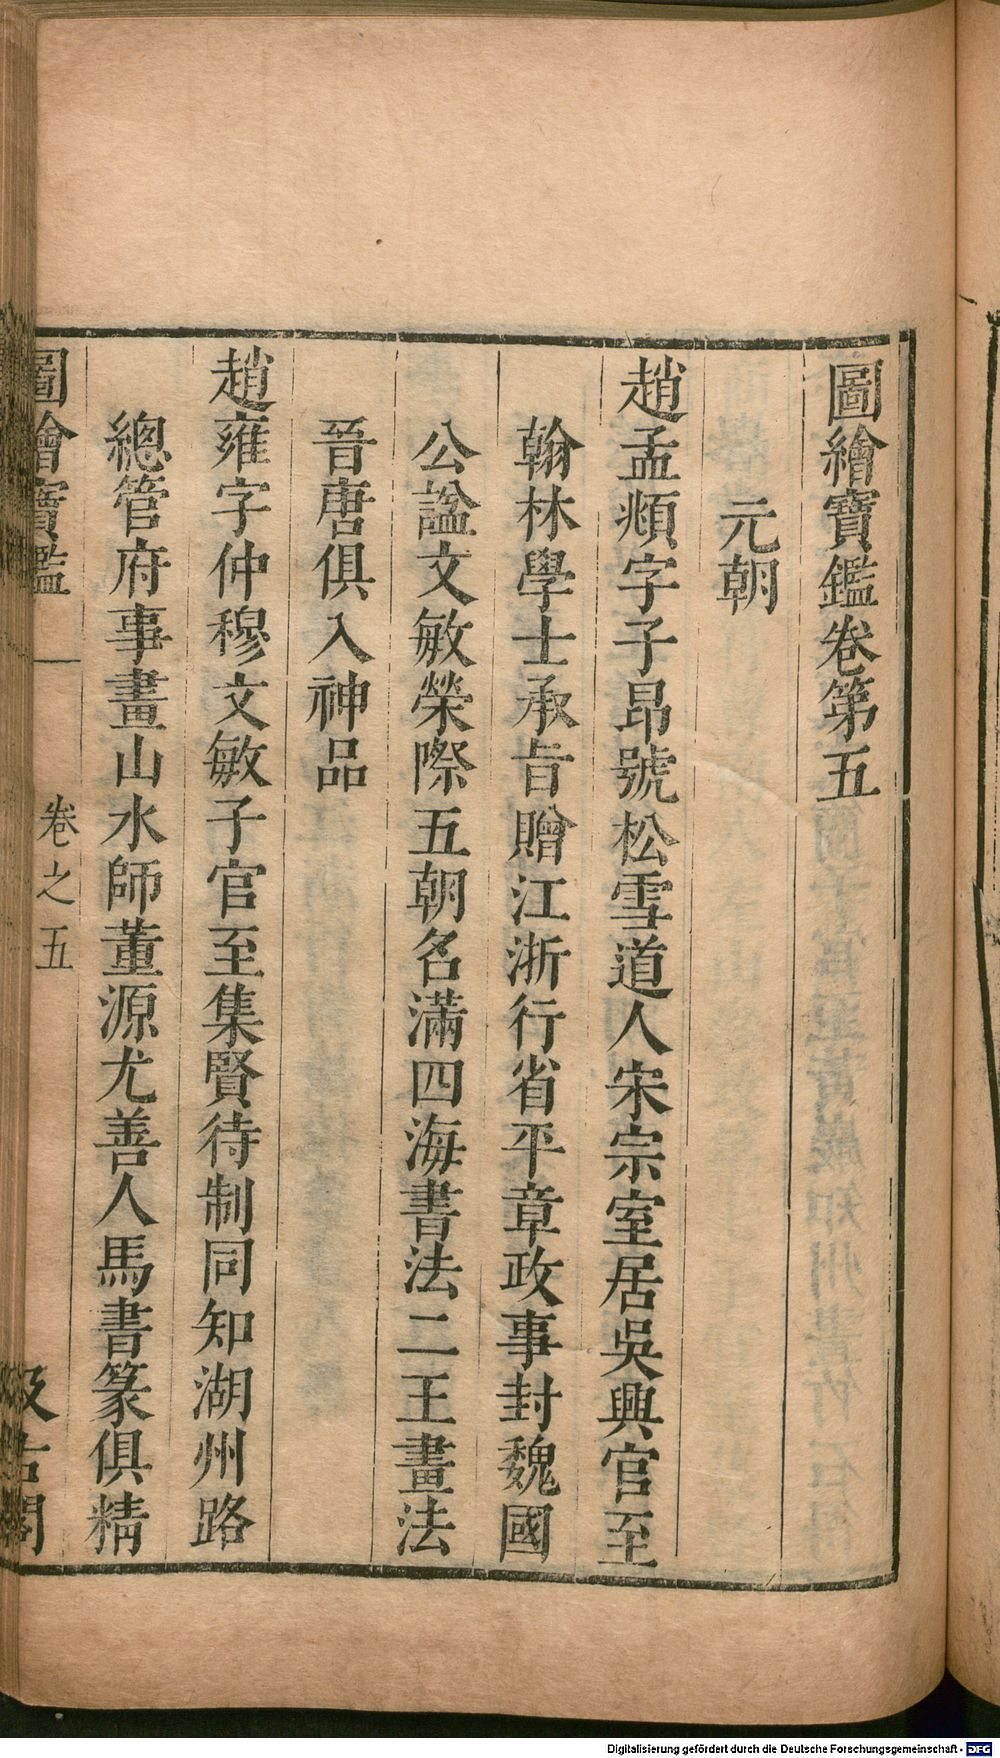 圖繪寶鑑卷第五
元朝
趙孟頫字子昂號松雪道人宋宗室居吳興官至
翰林學士承旨贈江浙行省平章政事封魏國
公謚文敏榮際五朝名滿四海書法二王畫法
晉唐俱入神品
趙雍字仲穆文敏子官至集賢待制同知湖州路
總管府事畫山水師董源尤善人馬書篆俱精
圖繪寶鑑 卷之五 汲古閣
Digitalisierung gefördert durch die Deutsche Forschungsgemeinschaft - DFG